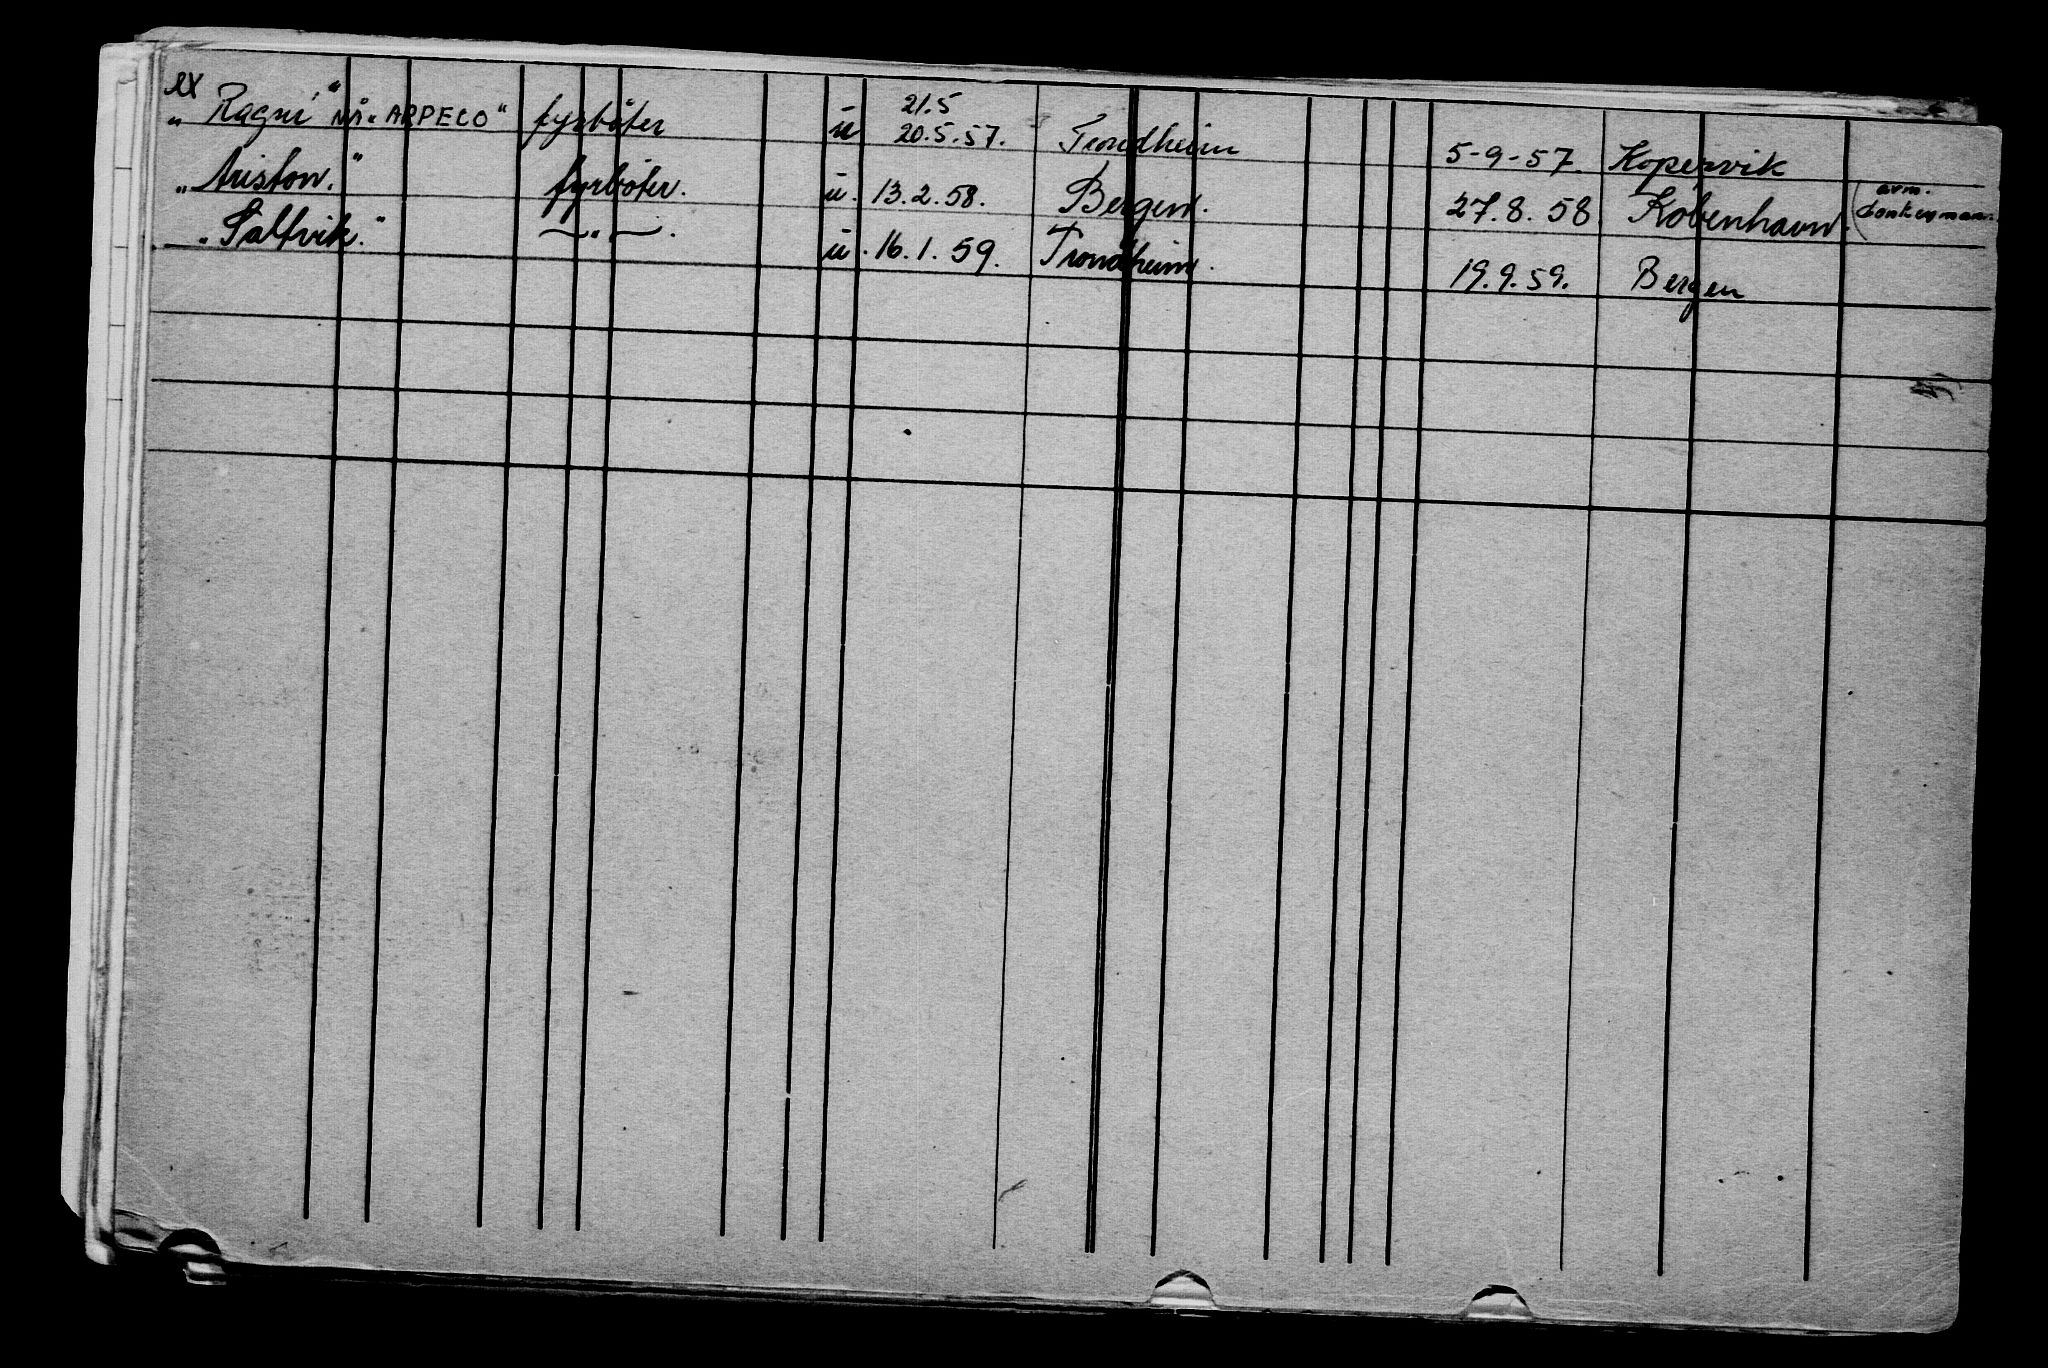 ex 21.5
„Ragni" NÅ „ARPECO" fyrbøter u 20.5.57. Trondheim 5-9-57. Kopervik
„Ariston." fyrbøter. u. 13.2.58. Bergen. 27.8.58 København. (avm. donkeymann.
„Salfvik." —„—. u. 16.1.59. Trondheim. 19.9.59. Bergen